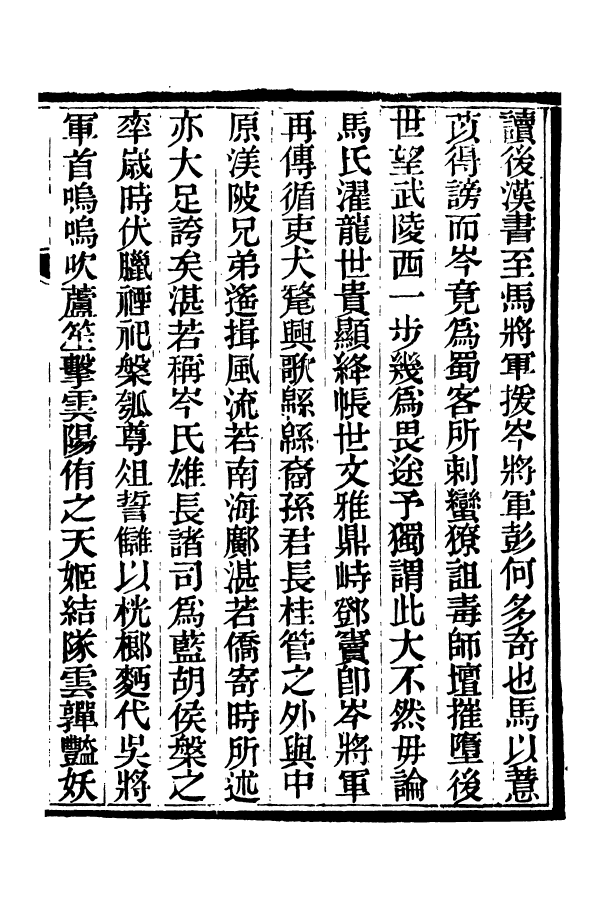 讀後漢書至馬將軍援岑將軍彭何多奇也馬以薏
苡得謗而岑竟爲蜀客所刺蠻獠詛毒師壇摧墮後
世望武陵西一步幾爲畏途予獨謂此大不然毋論
馬氏濯龍世貴顯絳帳世文雅鼎峙鄧竇卽岑將軍
再傳循吏犬氂興歌緜緜裔孫君長桂管之外與中
原渼陂兄弟遙揖風流若南海鄺湛若僑寄時所述
亦大足誇矣湛若稱岑氏雄長諸司爲藍胡侯槃之
率歲時伏臘禋祀槃瓠尊俎誓讎以桄榔麪代吳將
軍首嗚嗚吹蘆笙擊雲陽侑之天姬結隊雲嚲豔妖